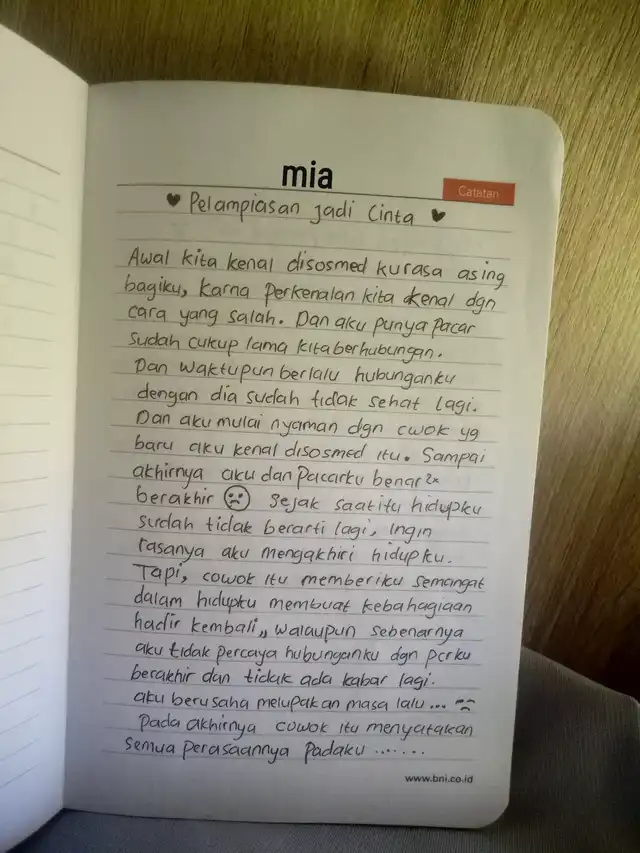 mia
Catatan
♥ Pelampiasan jadi Cinta ♥
Awal kita kenal disosmed kurasa asing
bagiku, karna perkenalan kita kenal dgn
cara yang salah. Dan aku punya pacar
sudah cukup lama kita berhubungan.
Dan waktupun berlalu hubunganku
dengan dia sudah tidak sehat lagi.
Dan aku mulai nyaman dgn cwok yg
baru aku kenal disosmed itu. Sampai
akhirnya aku dan Pacarku benar2x
berakhir ☹ Sejak saat itu hidupku
sudah tidak berarti lagi, Ingin
rasanya aku mengakhiri hidupku.
Tapi, cowok itu memberiku semangat
dalam hidupku membuat kebahagiaan
hadir kembali,, walaupun sebenarnya
aku tidak percaya hubunganku dgn pcrku
berakhir dan tidak ada kabar lagi.
aku berusaha melupakan masa lalu...
Pada akhirnya cowok itu menyatakan
semua perasaannya Padaku .......
www.bni.co.id